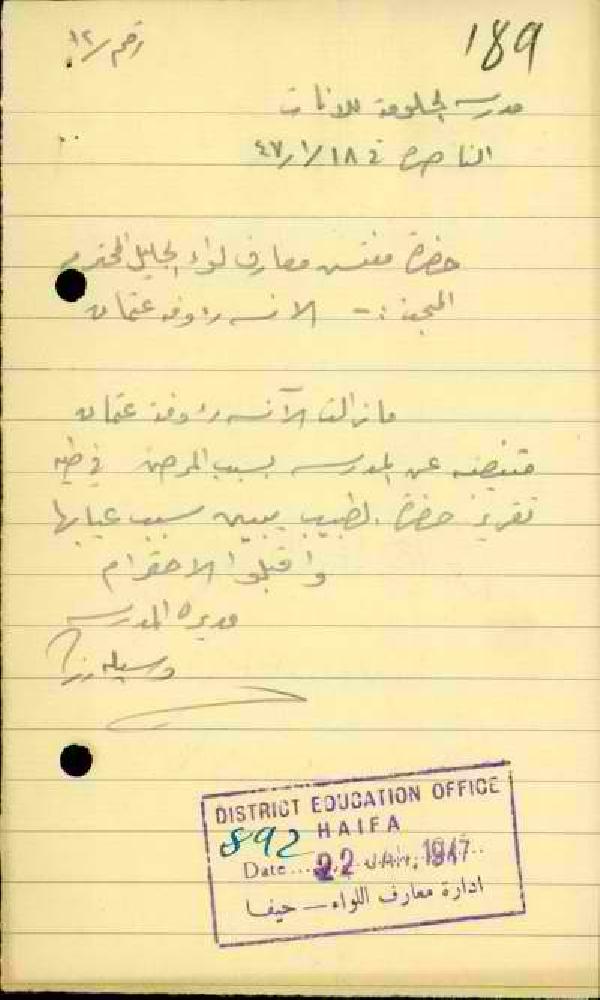 189
رقم / ١٢
مدرسة الحكومة للاناث
الناصرة في ١٨ / ١ / ٤٧
حضرة مفتش معارف لواء الجليل المحترم
المبحث :- الانسه رؤوفه عثمان
ما زالت الآنسه رؤوفة عثمان
متغيبه عن المدرسه بسبب المرض في طيه
تقرير حضرة الطبيب يبين سبب غيابها
واقبلوا الاحترام
مديرة المدرسه
وسيله
DISTRICT EDUCATION OFFICE
892 HAIFA
Date.... 22 JAN. 1947..
ادارة معارف اللواء — حيفا